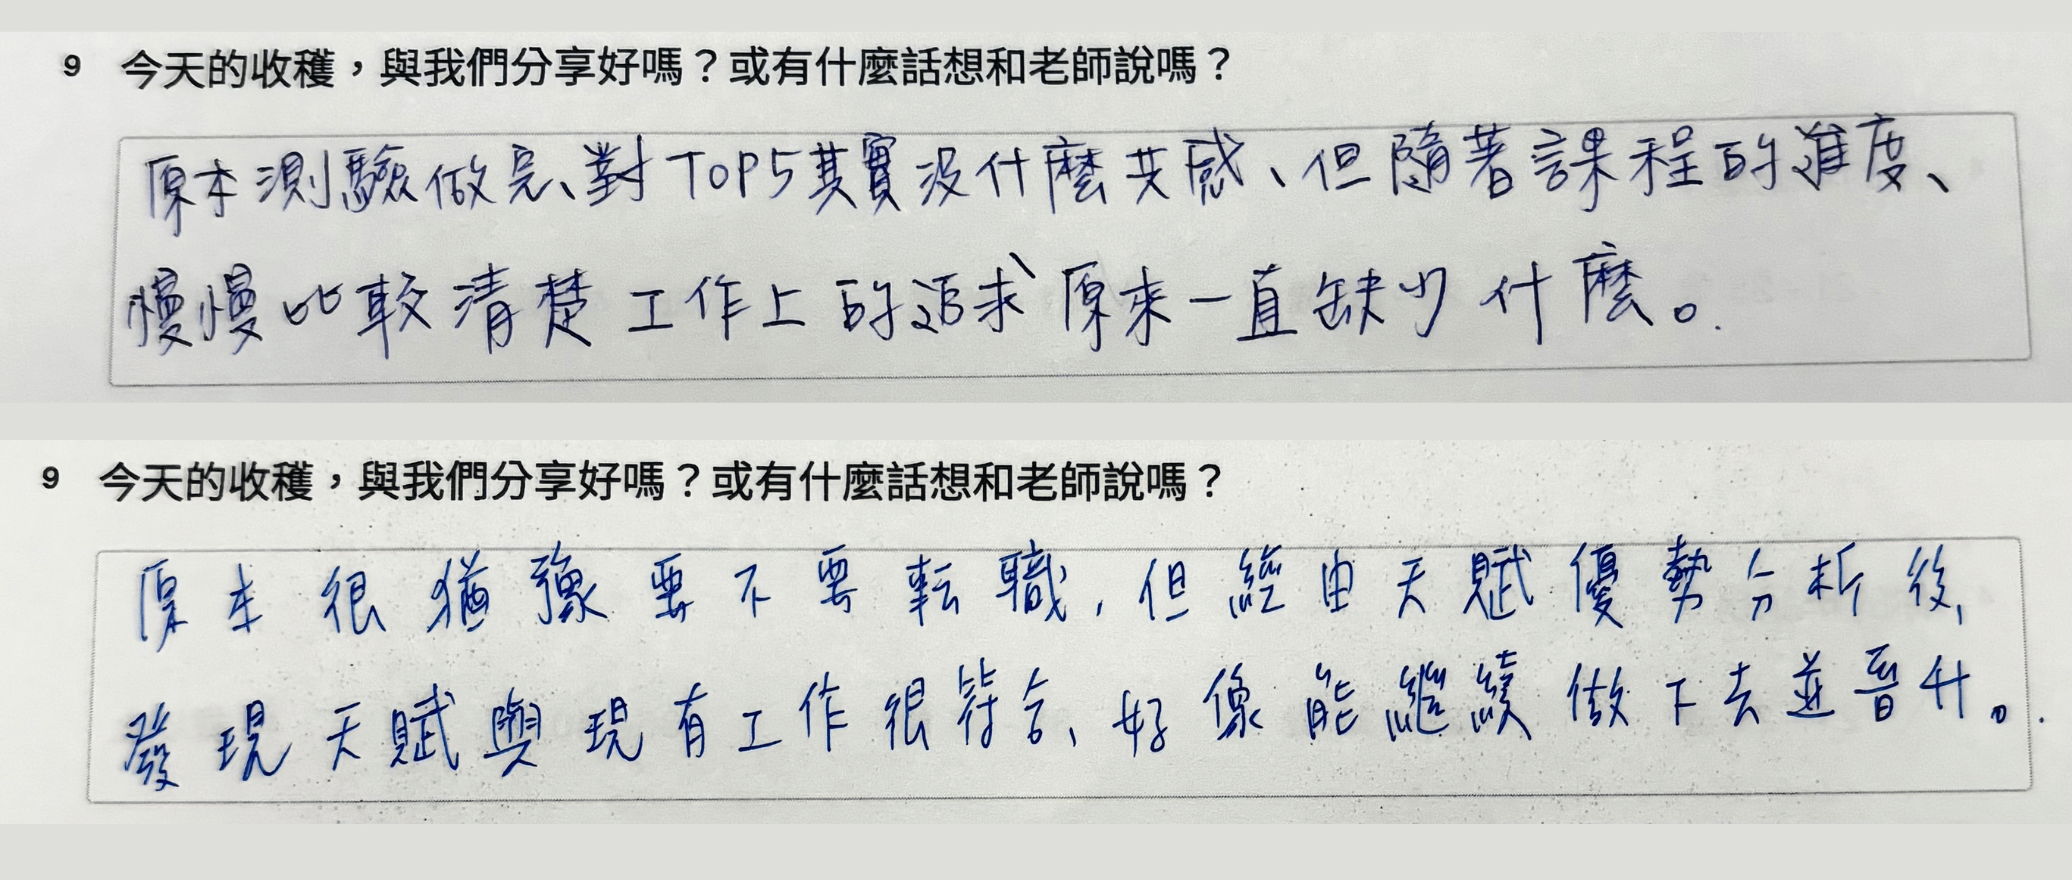 9 今天的收穫，與我們分享好嗎？或有什麼話想和老師說嗎？
原本測驗做完、對TOP5其實沒什麼共感、但隨著課程的進度、
慢慢比較清楚工作上的追求、原來一直缺少什麼。
9 今天的收穫，與我們分享好嗎？或有什麼話想和老師說嗎？
原本很猶豫要不要転職，但經由天賦優勢分析後，
發現天賦與現有工作很符合、好像能繼續做下去並晉升。